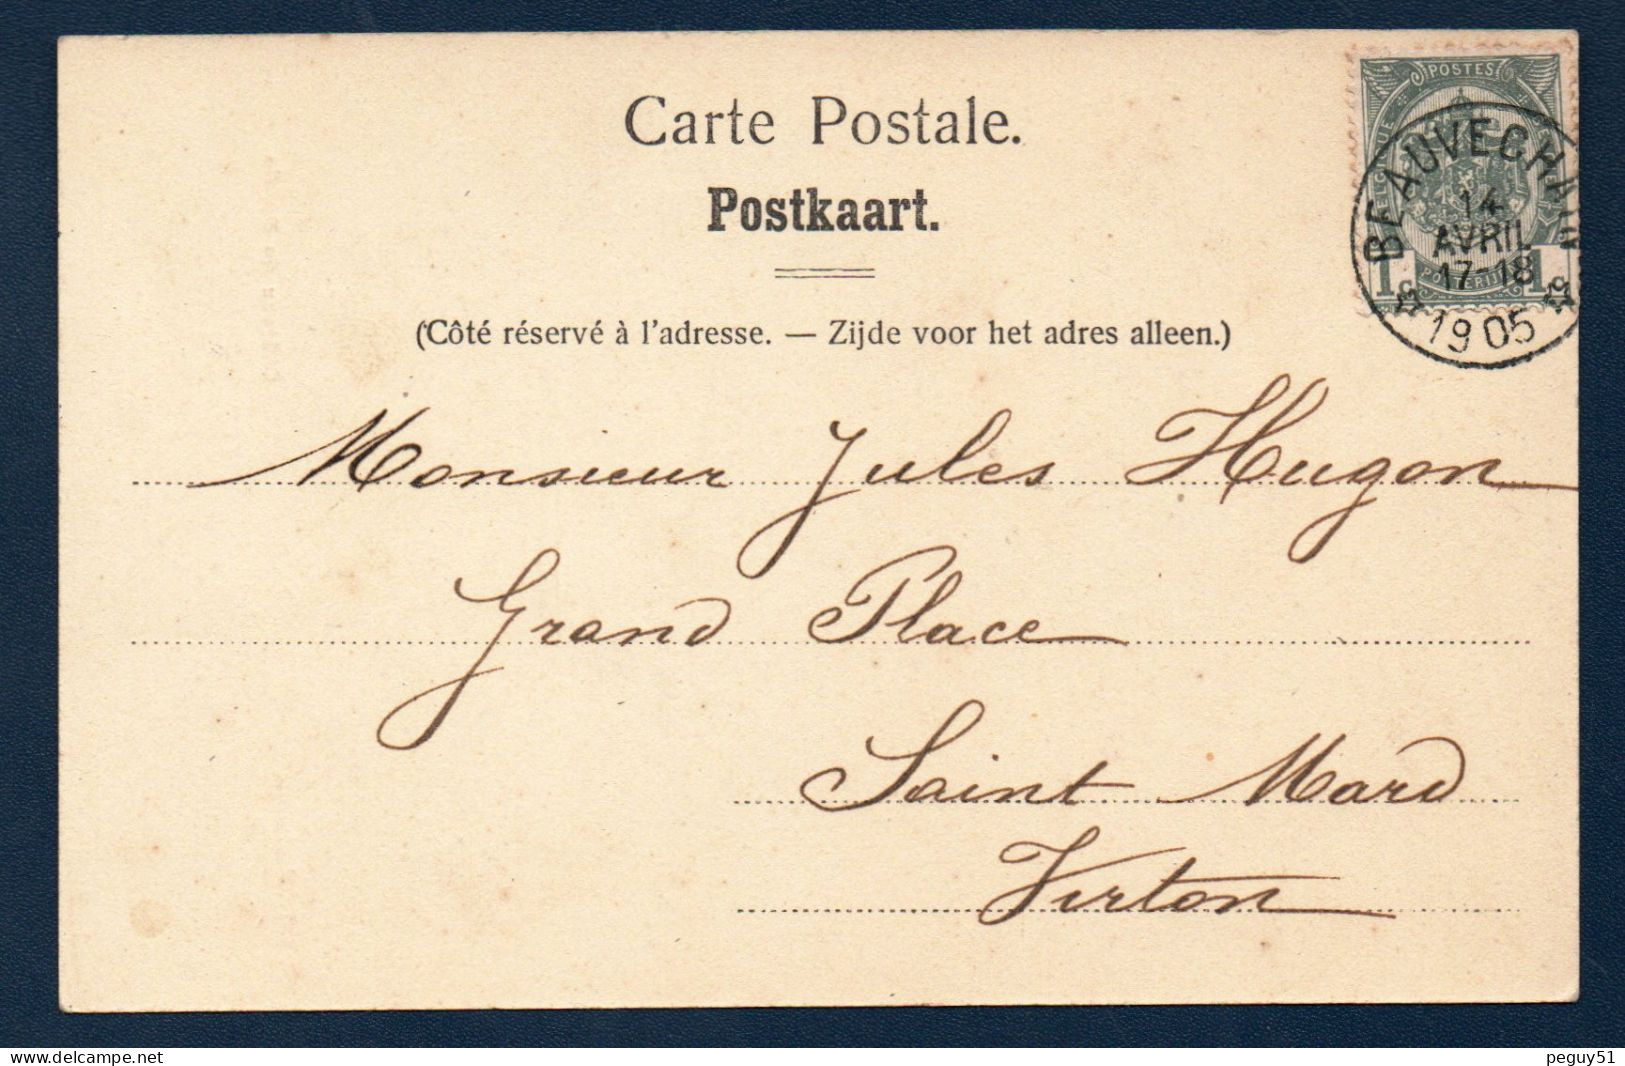 Carte Postale.
Postkaart.
(Côté réservé à l'adresse. — Zijde voor het adres alleen.)
POSTES
BELGIQUE
POSTERIJEN
1c 1c
BEAUVECHAIN
14
AVRIL
17-18
1905
Monsieur Jules Hugon
Grand Place
Saint Mard
Virton
www.delcampe.net
peguy51